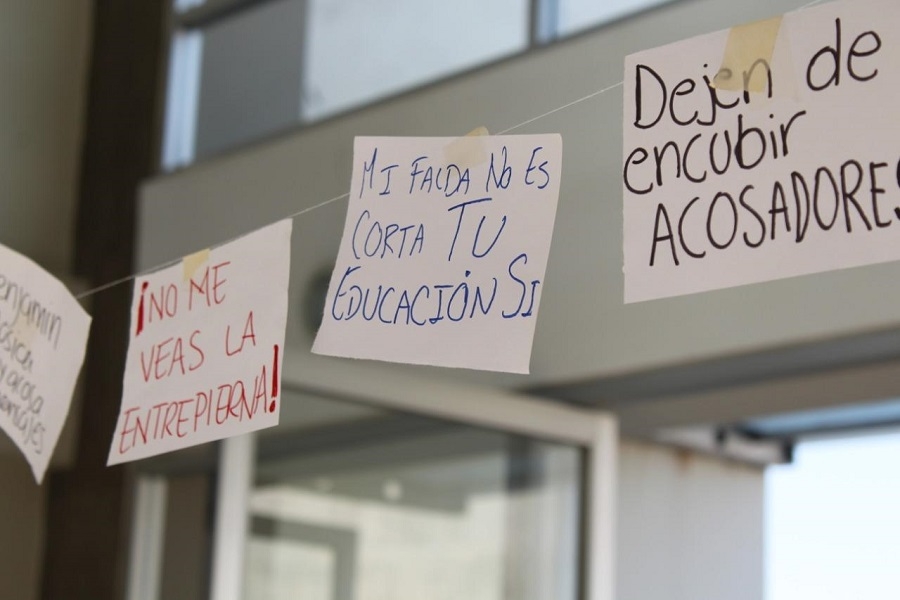 enjamin
y acosa
¡NO ME
VEAS LA
ENTREPIERNA!
MI FALDA NO ES
CORTA TU
EDUCACIÓN SI
Dejen de
encubir
ACOSADORES